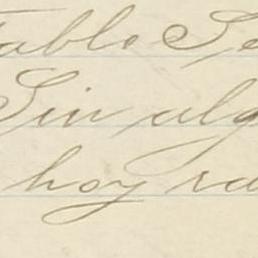 Pablo Se
Sin alg
hoy ra